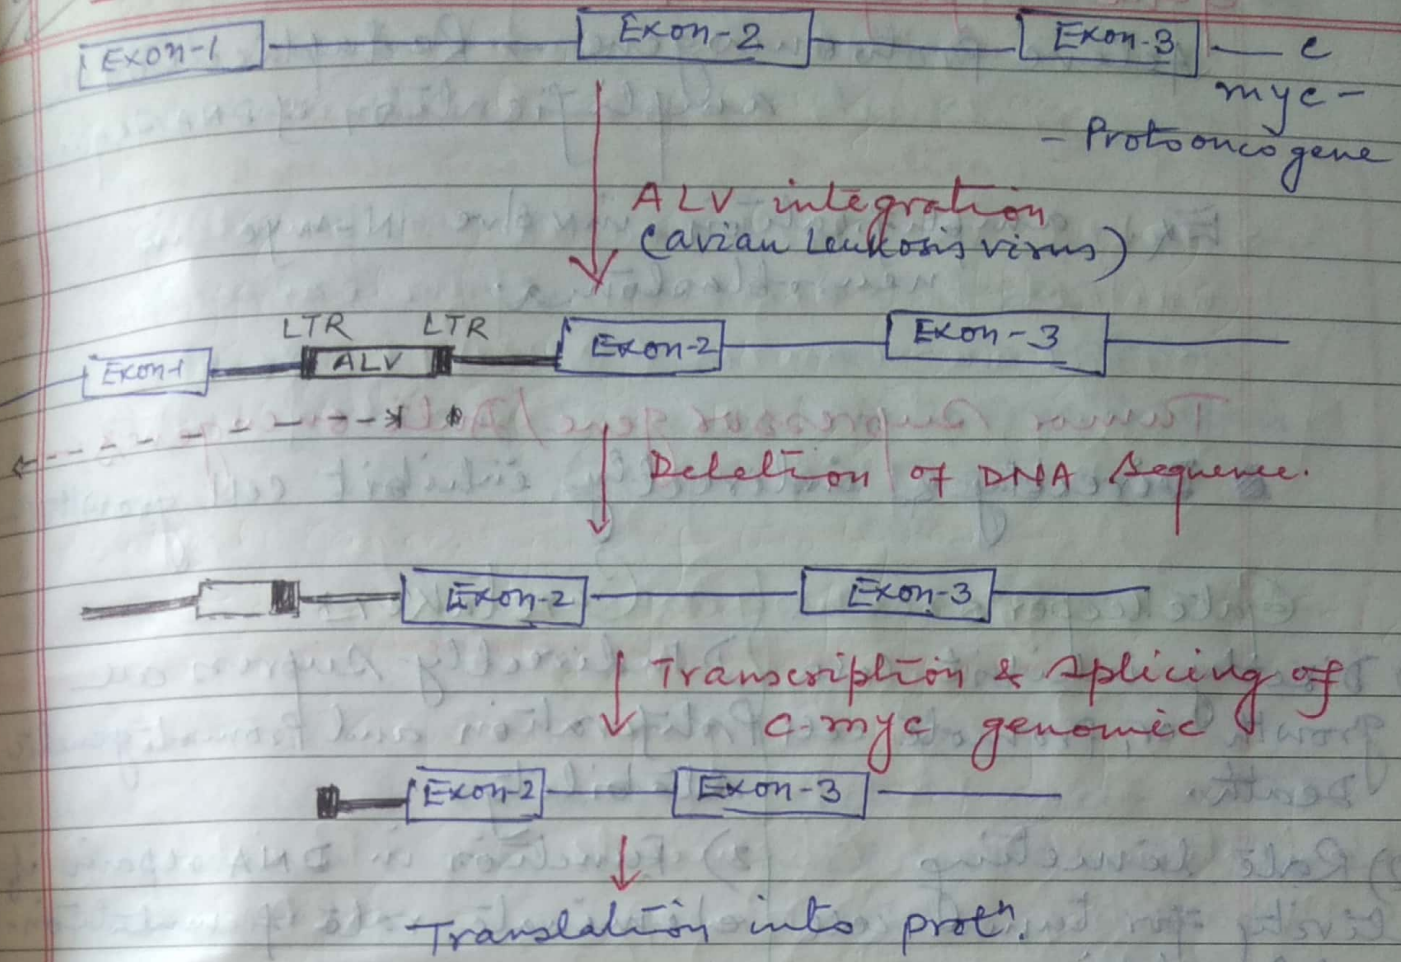 Exon-1 Exon-2 Exon-3 c
myc-
- Protooncogene
ALV-integration
(avian Leukosis virus)
LTR LTR
Exon-1 ALV Exon-2 Exon-3
Deletion of DNA Sequence.
Exon-2 Exon-3
Transcription & Splicing of
c myc genomic
Exon-2 Exon-3
Translation into protⁿ.